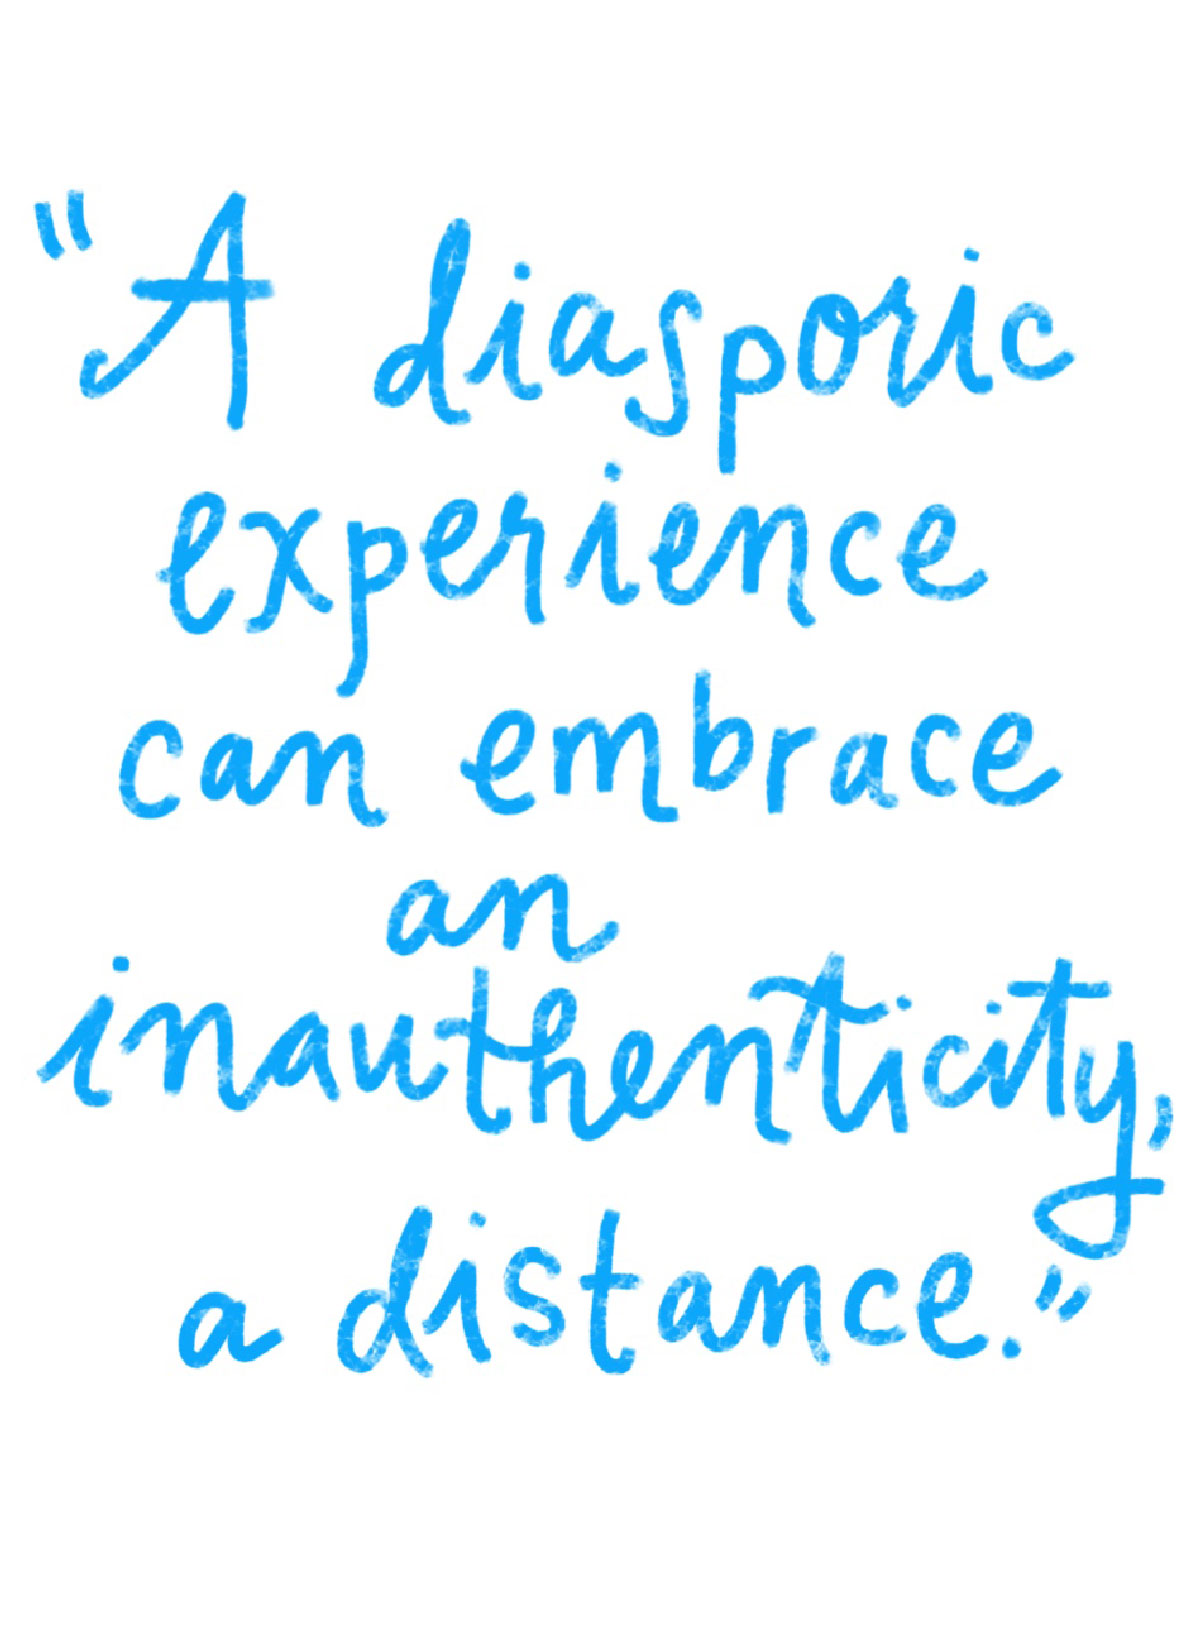 "A diasporic
experience
can embrace
an
inauthenticity,
a distance."